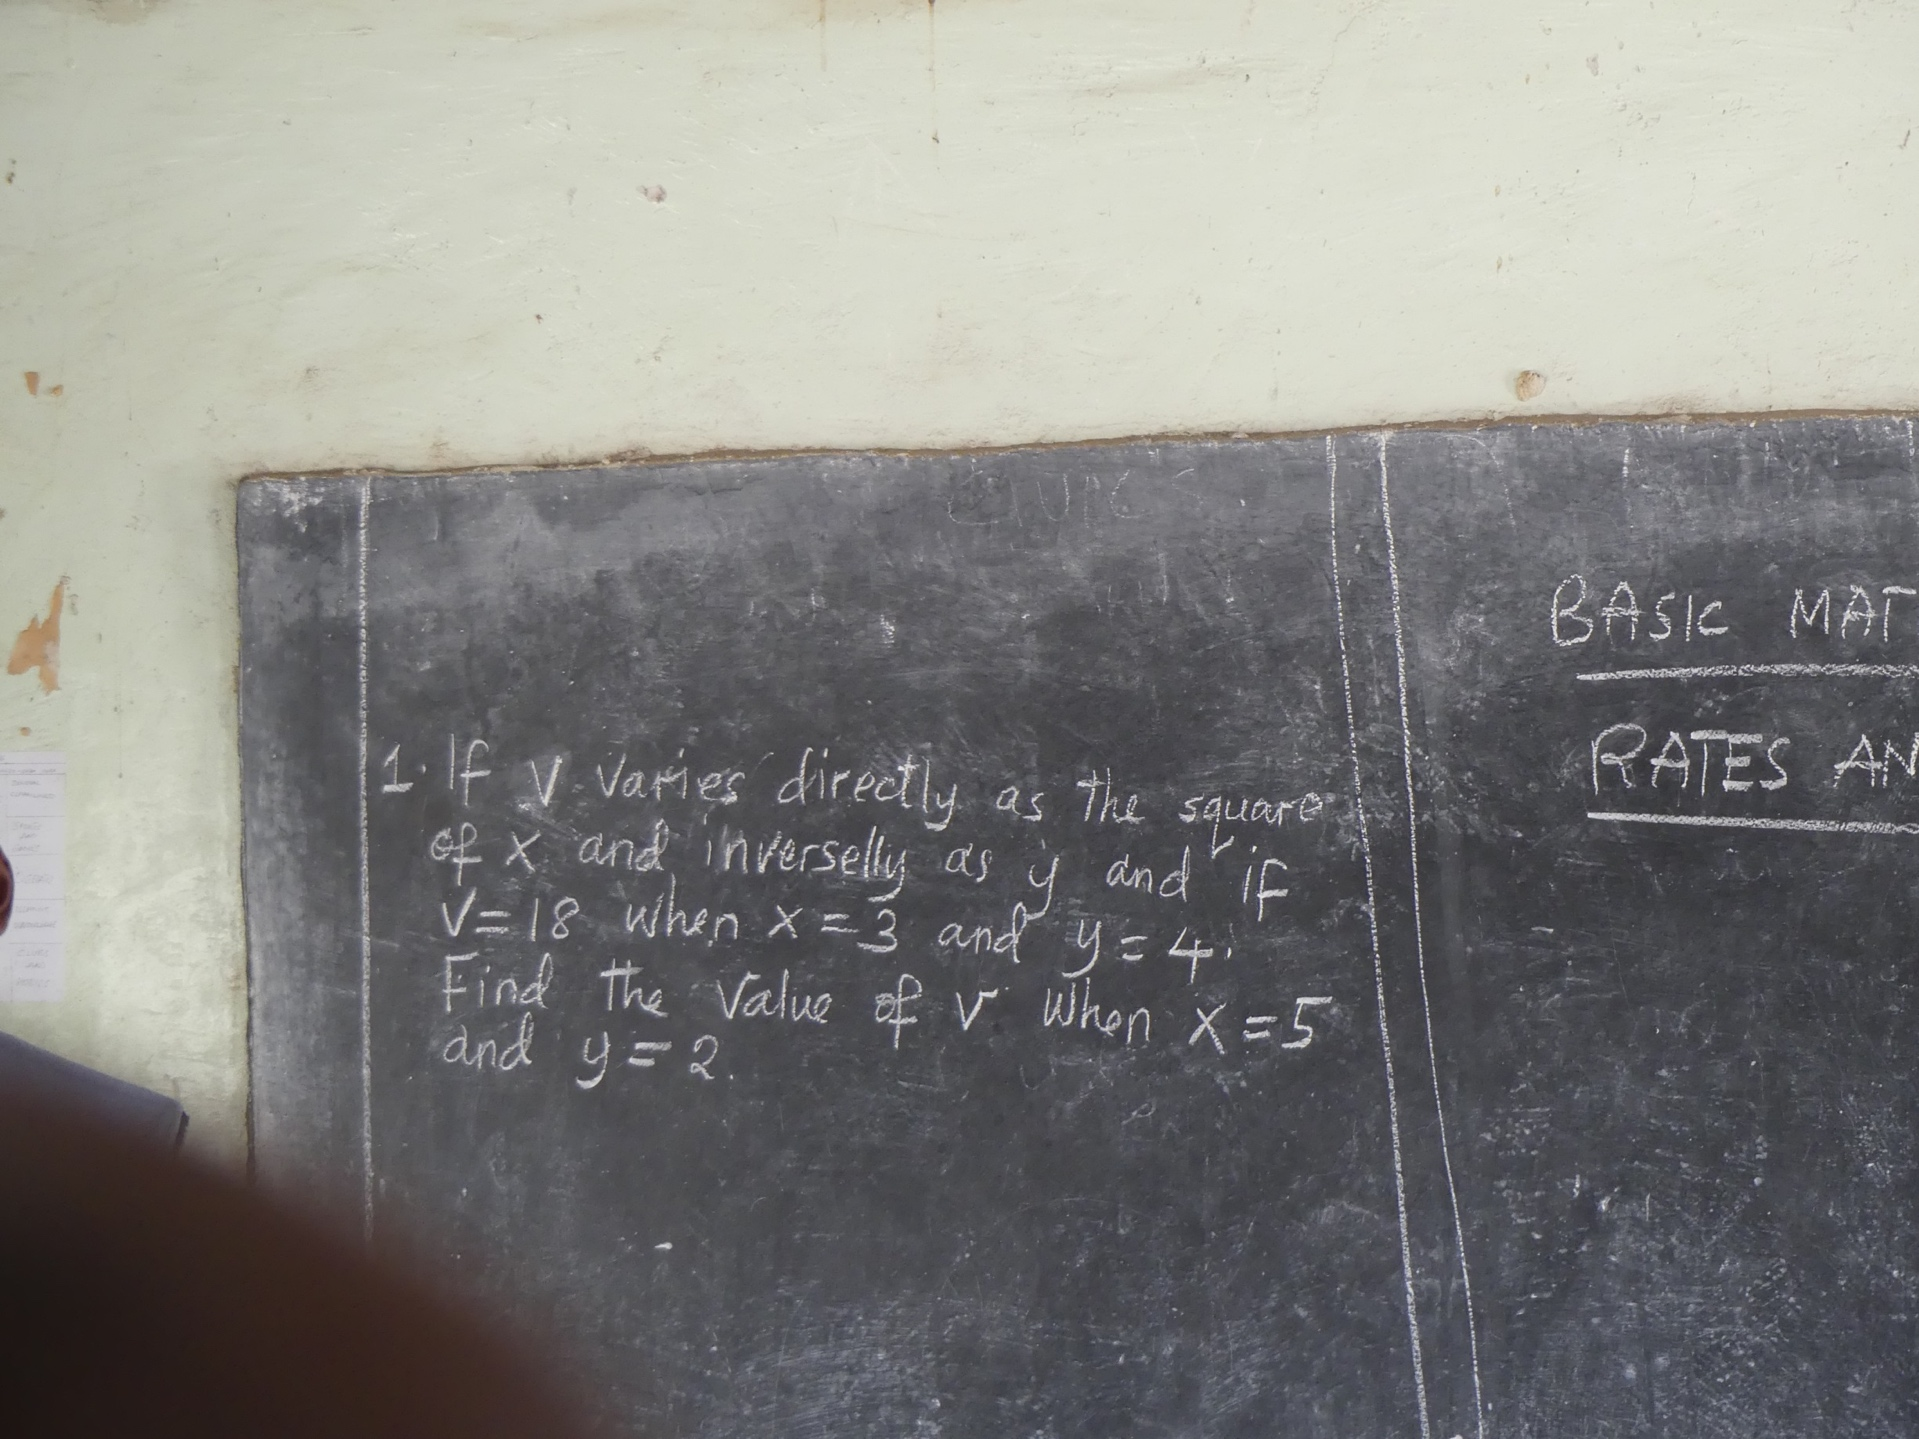 CIVICS
1. If V varies directly as the square
of x and inverselly as y and if
V=18 when x=3 and y=4.
Find the value of V when x=5
and y=2.
BASIC MAT
RATES AN